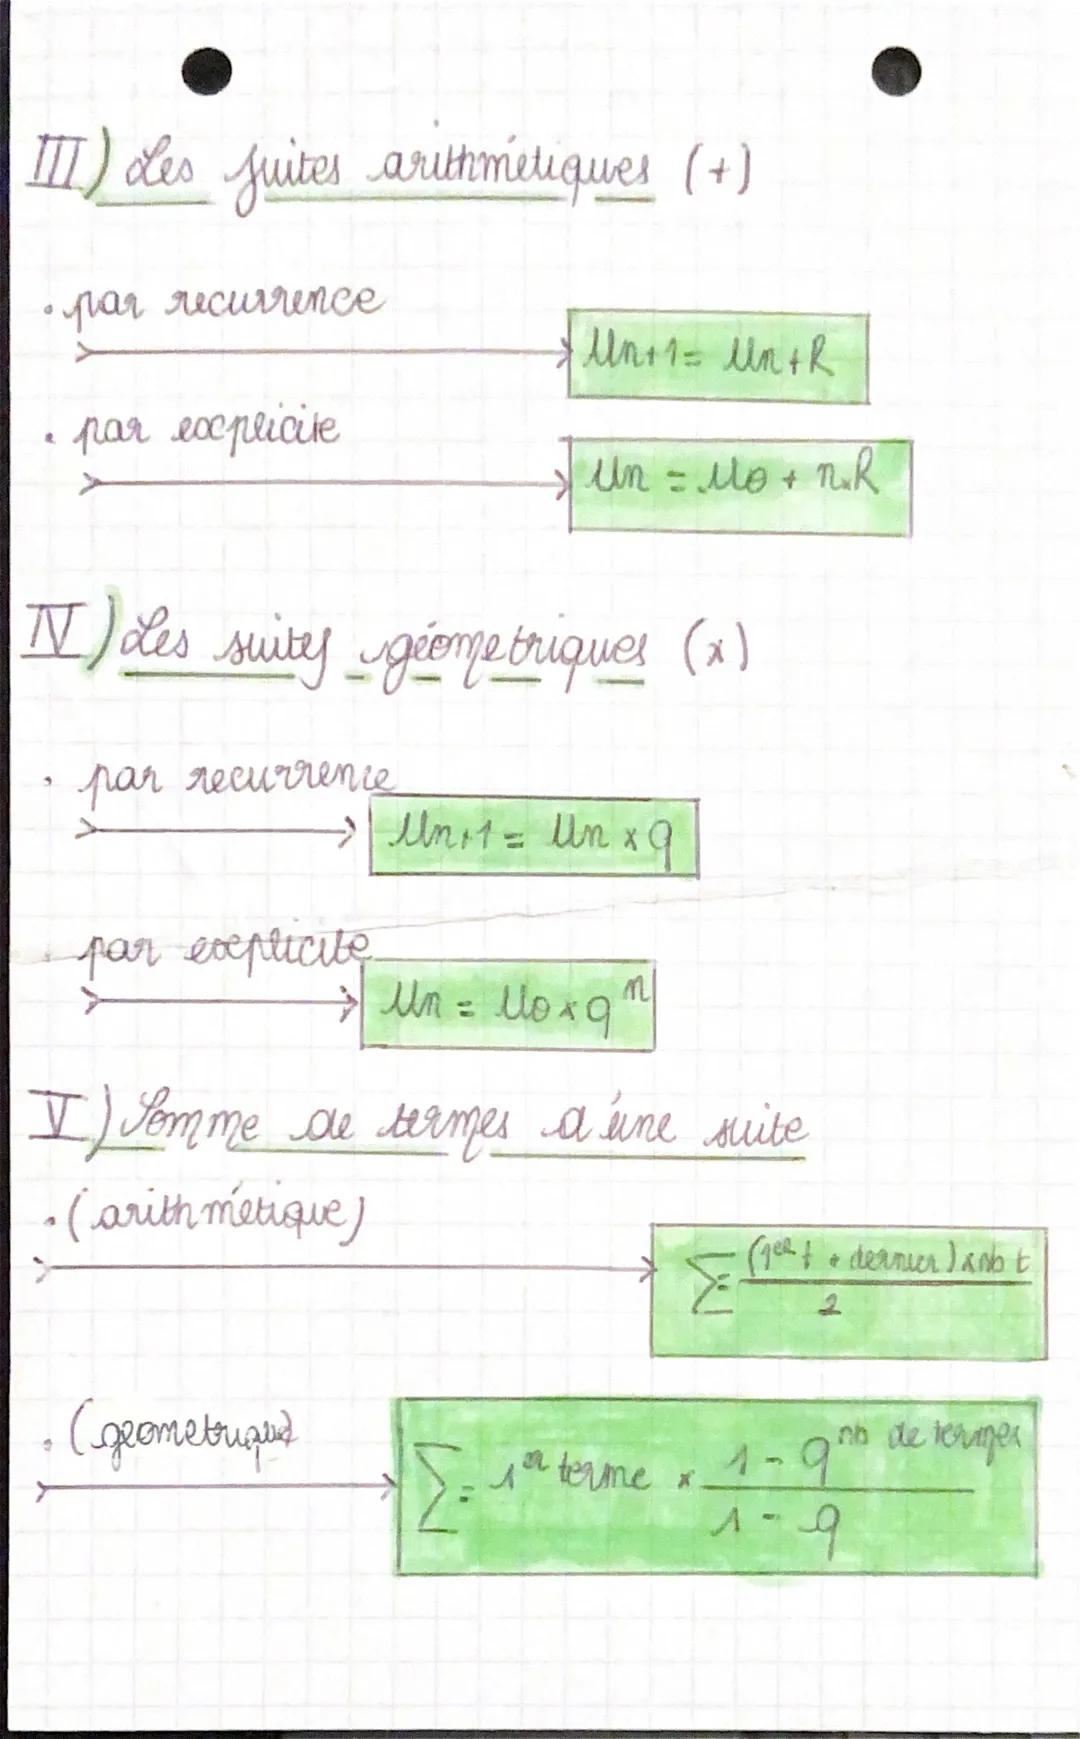 III) Les suites arithmétiques (+)
. par recurrence
Un+1 = Un + R
. par explicite
Un = U0 + n×R
IV) Les suites géometriques (x)
. par recurrence
Un+1 = Un × q
. par explicite
Un = U0 × q^n
V) Somme de termes d'une suite
. (arithmétique)
∑= (1er t + dernier) × nb t
2
. (geometrique)
∑= 1er terme × 1 - q^nb de termes
1 - q